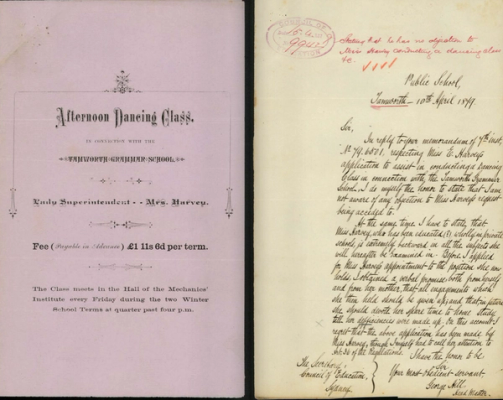 Afternoon Dancing Class.
IN CONNECTION WITH THE
TAMWORTH GRAMMAR SCHOOL.
Lady Superintendent - - Mrs. Harvey.
Fee (Payable in Advance) £1 11s 6d per term.
The Class meets in the Hall of the Mechanics'
Institute every Friday during the two Winter
School Terms at quarter past four p.m.
Stating that he has no objection to
Miss Harvey conducting a dancing class
&c.
Public School,
Tamworth - 10th April 1879.
Sir,
In reply to your memorandum of 7th inst,
respecting Miss E Harvey's
application to assist in conducting a Dancing
Class in connection with the Tamworth Grammar
School, I do myself the honor to state that I am
not aware of any objection to Miss Harvey's request
being acceded to.
At the same time I have to state, that
Miss Harvey, who has been educated wholly in private
schools, is extremely backward in all the subjects she
will hereafter be examined in. Before I applied
for Miss Harvey's appointment to the position she now
holds I obtained a verbal promise both from herself
and from her mother, that all engagements which
she then held should be given up, and that in future
she should devote her spare time to home study
till her deficiencies were made up. On this account I
regret that the above application has been made by
Miss Harvey, though I myself had to call her attention to
of the Regulations.
I have the honor to be
Sir
Your most obedient servant
George Hill
Head Master.
The Secretary
Council of Education,
Sydney